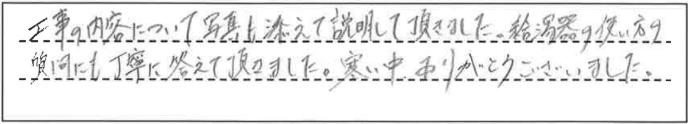 工事の内容について写真も添えて説明して頂きました。給湯器の使い方の
質問にも丁寧に答えて頂きました。寒い中ありがとうございました。